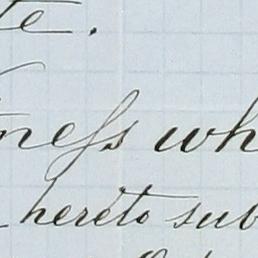 te.
tneſs wh
hereto sub